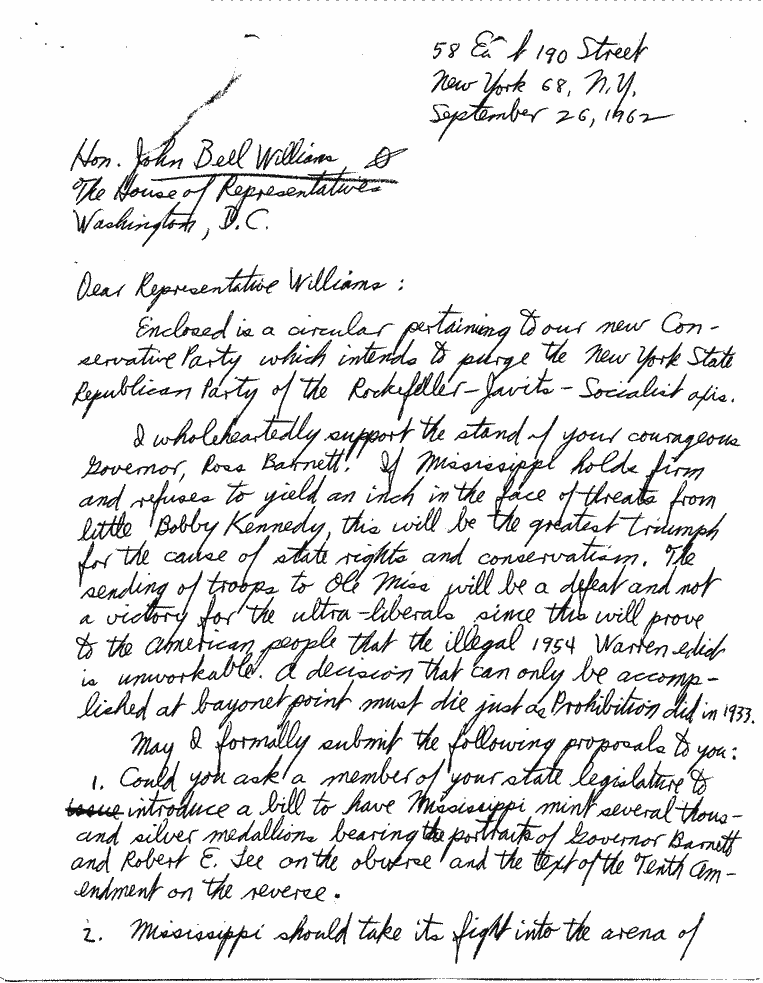 58 East 190 Street
New York 68, N.Y.
September 26, 1962
Hon. John Bell Williams
The House of Representatives
Washington, D.C.
Dear Representative Williams:
Enclosed is a circular pertaining to our new Con-
servative Party which intends to purge the New York State
Republican Party of the Rockefeller-Javits-Socialist axis.
I wholeheartedly support the stand of your courageous
Governor, Ross Barnett! If Mississippi holds firm
and refuses to yield an inch in the face of threats from
little Bobby Kennedy, this will be the greatest triumph
for the cause of state rights and conservatism. The
sending of troops to Ole Miss will be a defeat and not
a victory for the ultra-liberals since this will prove
to the American people that the illegal 1954 Warren edict
is unworkable. A decision that can only be accomp-
lished at bayonet point must die just as Prohibition did in 1933.
May I formally submit the following proposals to you:
1. Could you ask a member of your state legislature to
issue introduce a bill to have Mississippi mint several thous-
and silver medallions bearing the portraits of Governor Barnett
and Robert E. Lee on the obverse and the text of the Tenth Am-
endment on the reverse.
2. Mississippi should take its fight into the arena of